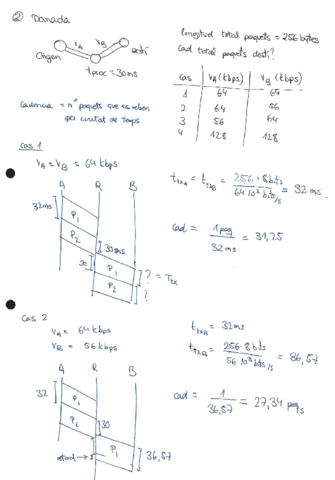 ② Danada
Origen
vA
vB
destí
tproc = 30ms
Cadència = nº paquets que es reben
per unitat de temps
longitud total paquets = 256 bytes
Cad total paquets destí?
cas vA (kbps) vB (kbps)
1 64 64
2 64 56
3 56 64
4 128 128
cas 1
vA = vB = 64 kbps
A R B
32ms
P1
P2
30ms
30
P1
P2
? = Ttx
?
ttxA = ttxB = 256 · 8 bits / 64·10³ bits/s = 32 ms.
cad = 1 paq / 32 ms = 31,25
Cas 2
vA = 64 kbps
vB = 56 kbps
A R B
32
P1
P2
30
retard
P1
36,57
ttxA = 32ms
ttxB = 256·8 bits / 56·10³ bits/s = 36,57
cad = 1 / 36,57 = 27,34 paq/s